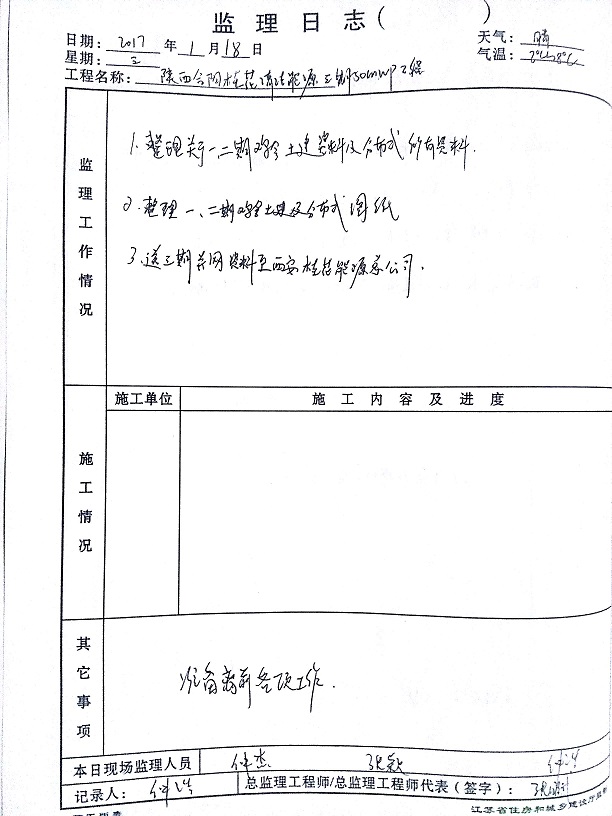 监理日志( )
日期：2017年1月18日
天气：晴
星期：三
气温：
工程名称：陕西合阳桂花清洁能源三期50MWP工程
监理工作情况
1.整理关于一二期 土建资料及分布式所有资料.
2.整理一、二期 土建及分布式图纸
3.送三期并网资料至西安桂花能源总公司.
施工情况
施工单位
施工内容及进度
其它事项
准备 前各项工作.
本日现场监理人员
记录人：
总监理工程师/总监理工程师代表（签字）：
江苏省住房和城乡建设厅监制